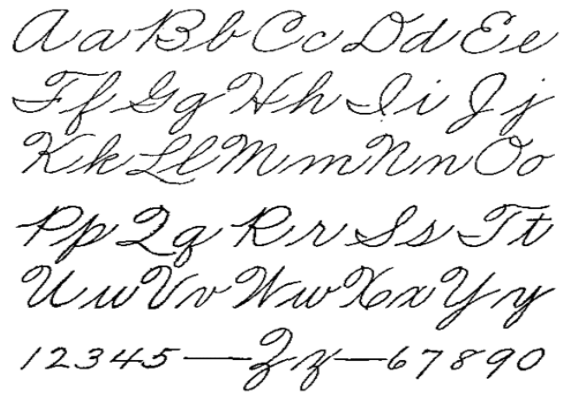 A a B b C c D d E e
F f G g H h I i J j
K k L l M m N n O o
P p Q q R r S s T t
U u V v W w X x Y y
1 2 3 4 5 — Z z — 6 7 8 9 0